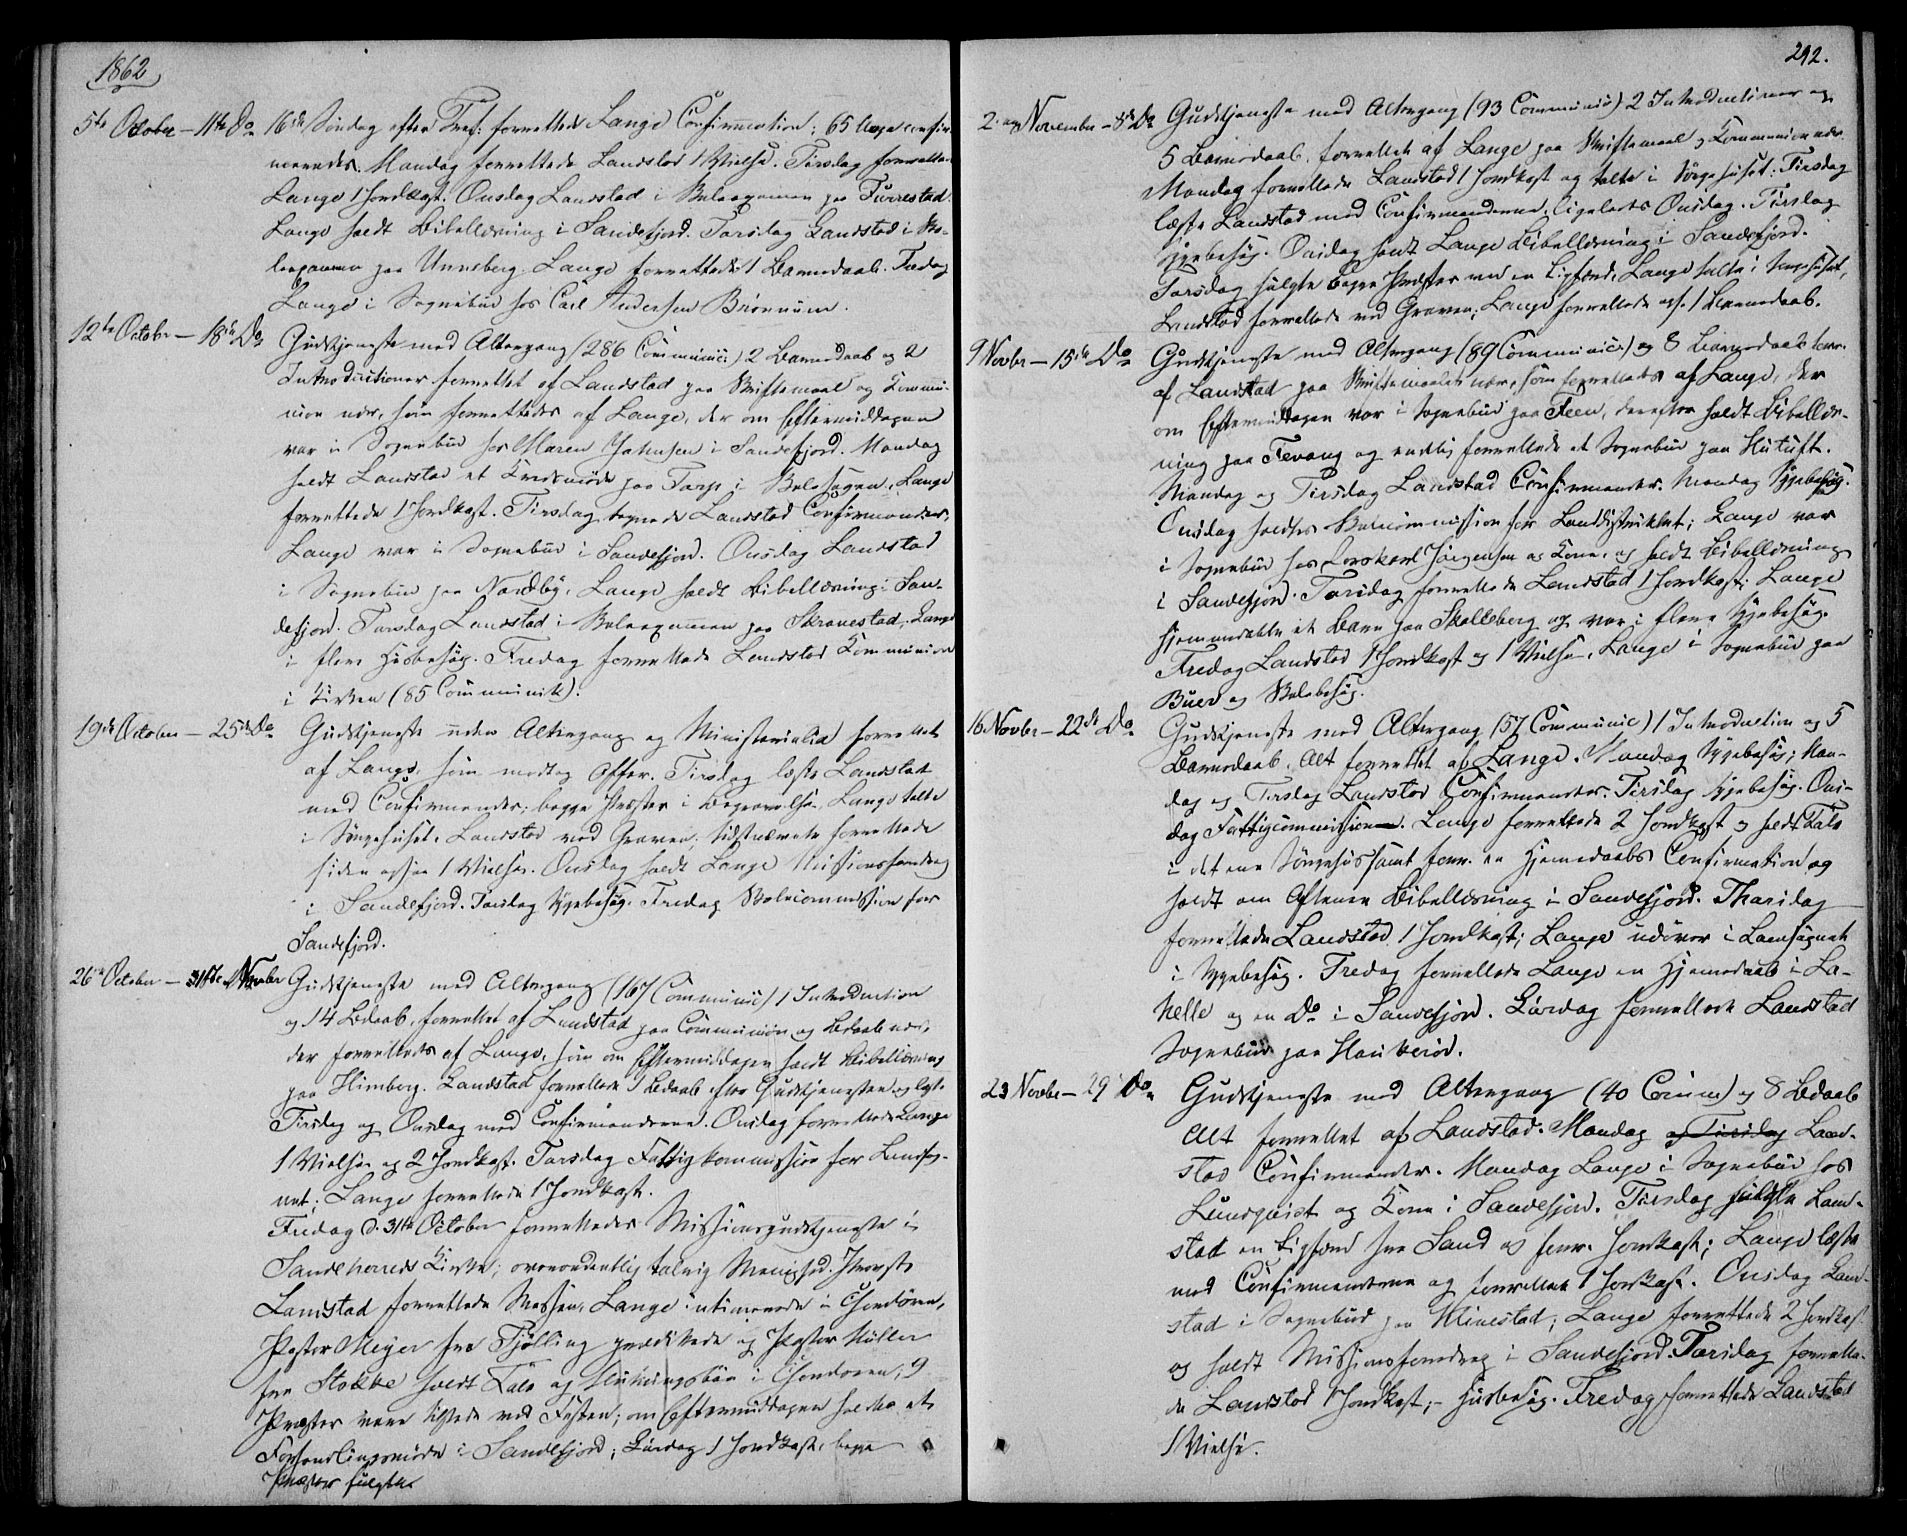 1862
5te October – 11te Do 16de Søndag efter Tref: forrettede Lange Confirmation; 65 Unge confir-
meredes. Mandag forrettede Landstad 1 Vielse. Tirsdag forrettede
Lange 1 Jordkast. Onsdag Landstad i Skoleexamen paa Furrestad.
Lange holdt Bibellæsning i Sandefjord. Torsdag Landstad i Sko-
leexamen paa Unneberg. Lange forrettede 1 Barnedaab. Fredag
Lange i Sognebud hos Carl Andersen
12te Octobr – 18de Do Gudstjeneste med Altergang (286 Communic:) 2 Barnedaab og 2
Introductioner forrettet af Landstad paa Skriftemaal og Kommu-
nion nær, som forrettedes af Lange, der om Eftermiddagen
var i Sognebud hos Maren Johnsen i Sandefjord. Mandag
holdt Landstad et Kredsmøde paa Torp i Skolesagen, Lange
forrettede 1 Jordkast. Tirsdag Landstad Confirmander,
Lange var i Sognebud i Sandefjord. Onsdag Landstad
i Sognebud paa Nordby, Lange holdt Bibellæsning i San-
defjord. Torsdag Landstad i Skoleexamen paa Skravestad, Lange
i flere Husbesøg. Fredag forrettede Landstad Kommunion
i Kirken (85 Communik).
19de October – 25de Do Gudstjeneste uden Altergang og Ministerialia forrettet
af Lange, som modtog Offer. Tirsdag læste Landstad
med Confirmander; begge Præster i Begravelse, Lange talte
i Sørgehuset, Landstad ved Graven; sidstnævnte forrettede
siden ogsaa 1 Vielse. Onsdag holdt Lange Missionsforedrag
i Sandefjord. Torsdag Sygebesøg. Fredag Skolecommission for
Sandefjord.
26de October – Novbr Gudstjeneste med Altergang (167 Communic) 1 Introduction
og 14 Bdaab, forrettet af Landstad paa Communion og Bdaab nær,
der forrettedes af Lange, som om Eftermiddagen holdt Bibellæsning
paa Himberg. Landstad forrettede 1 Bdaab efter Gudstjenesten og læste
Tirsdag og Onsdag med Confirmanderne. Onsdag forrettede Lange
1 Vielse og 2 Jordkast. Torsdag Fattigkommission for Landsog-
net; Lange forrettede 1 Jordkast.
Fredag d. 31te October forrettedes Missionsgudstjeneste i
Sandeherreds Kirke; overordentlig talrig Menighed. Provst
Landstad forrettede Messen, Lange intimerede i Chordøren,
Pastor Meyer fra Tjølling prædikede og Pastor Müller
fra Stokke holdt Tale og Slutningsbøn i Chordøren; 9
Præster vare tilstede ved Festen; om Eftermiddagen holdtes et
Forhandlingsmøde i Sandefjord; Lørdag 1 Jordkast, begge
Præster fulgte
292.
2. November – 8de Do Gudstjeneste med Altergang (93 Communic) 2 Introductioner og
5 Barnedaab, forrettet af Lange paa Skriftemaal og Kommunion nær.
Mandag forrettede Landstad 1 Jordkast og talte i Sørgehuset; Tirsdag
læste Landstad med Confirmanderne, ligeledes Onsdag. Tirsdag
Sygebesøg. Onsdag holdt Lange Bibellæsning i Sandefjord.
Torsdag fulgte begge Præster med en Ligfærd, Lange talte i Sørgehuset,
Landstad forrettede ved Graven; Lange forrettede ogs. 1 Barnedaab.
9 Novbr – 15de Do Gudstjeneste med Altergang (89 Communic:) og 8 Barnedaab forr.
af Landstad paa Skriftemaalet nær, som forrettedes af Lange, der
om Eftermiddagen var i Sognebud paa Feen, derefter holdt Bibellæs-
ning paa Fevang og endelig forrettede et Sognebud paa Hutuft.
Mandag og Tirsdag Landstad Confirmander. Mandag Sygebesøg.
Onsdag holdtes Skolecommission for Landdistriktet; Lange var
i Sognebud hos Jørgensen og Kone, og holdt Bibellæsning
i Sandefjord. Torsdag forrettede Landstad 1 Jordkast; Lange
hjemmedøbte et Barn paa Skolleberg og var i flere Sygebesøg.
Fredag Landstad 1 Jordkast og 1 Vielse, Lange i Sognebud paa
Buer og Skolebesøg.
16 Novbr – 22de Do Gudstjeneste med Altergang (57 Communic) 1 Introduction og 5
Barnedaab, Alt forrettet af Lange. Mandag Sygebesøg; Man-
dag og Tirsdag Landstad Confirmander. Tirsdag Sygebesøg. Ons-
dag Fattigcommission. Lange forrettede 2 Jordkast og holdt Tale
i det ene Sørgehus samt forr. en Hjemmedaabs Confirmation og
holdt om Aftenen Bibellæsning i Sandefjord. Thorsdag
forrettede Landstad 1 Jordkast; Lange i Landsognet
i Sygebesøg. Fredag forrettede Lange en Hjemmedaab i La-
helle og en Do i Sandefjord. Lørdag forrettede Landstad
Sognebud paa Haukerød.
23 Novbr – 29 Do Gudstjeneste med Altergang (40 Comm) og 8 Bdaab
Alt forrettet af Landstad. Mandag og Tirsdag Land-
stad Confirmander. Mandag Lange i Sognebud hos
Lundqvist og Kone i Sandefjord. Tirsdag fulgte Land-
stad en Ligfærd fra Sand og forr. Jordkast; Lange læste
med Confirmanderne og forrettet 1 Jordkast. Onsdag Land-
stad i Sognebud paa Klinestad; Lange forrettede 2 Jordkast
og holdt Missionsforedrag i Sandefjord. Torsdag forrette-
de Landstad 1 Jordkast; – Husbesøg. Fredag forrettede Landstad
1 Vielse.